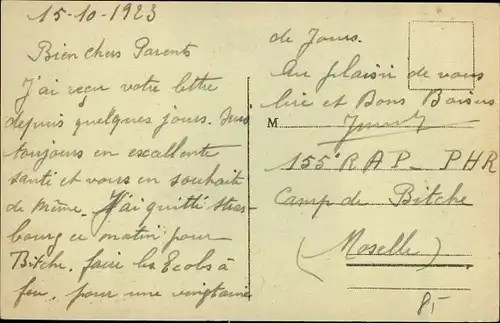 15-10-1923
Bien chers Parents
J'ai reçu votre lettre
depuis quelques jours. Suis
toujours en excellente
santé et vous en souhaite
de même. J'ai quitté Stras-
bourg ce matin pour
Bitche. faire les Ecoles à
feu. pour une vingtaine
de Jours.
Au plaisir de vous
lire et Bons Baisers
M
155e RAP_ PHR
Camp de Bitche
(Moselle)
85